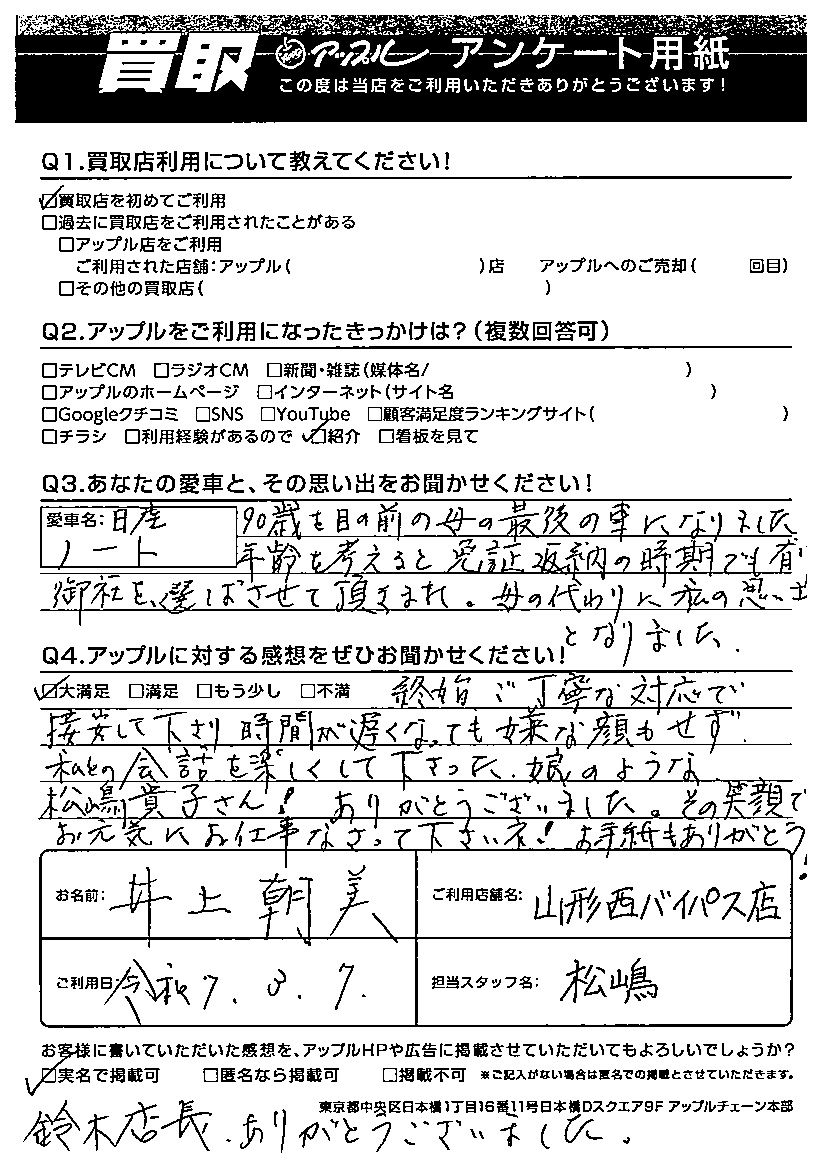 買取 アップル アンケート用紙
この度は当店をご利用いただきありがとうございます!
Q1.買取店利用について教えてください!
☑買取店を初めてご利用
□過去に買取店をご利用されたことがある
□アップル店をご利用
ご利用された店舗:アップル( )店 アップルへのご売却( 回目)
□その他の買取店( )
Q2.アップルをご利用になったきっかけは?(複数回答可)
□テレビCM □ラジオCM □新聞・雑誌(媒体名/ )
□アップルのホームページ □インターネット(サイト名 )
□Googleクチコミ □SNS □YouTube □顧客満足度ランキングサイト( )
□チラシ □利用経験があるので ☑紹介 □看板を見て
Q3.あなたの愛車と、その思い出をお聞かせください!
愛車名:日産
ノート
90歳を目の前の母の最後の車になりました
年齢を考えると免証返納の時期でも有
御社を、選ばさせて頂きまれ。母の代わりに私の思い出
となりました.
Q4.アップルに対する感想をぜひお聞かせください!
☑大満足 □満足 □もう少し □不満 終始ご丁寧な対応で
接客して下さり時間が遅くなっても嫌な顔もせず.
私との会話を楽しくして下さった.娘のような
松嶋貴子さん!ありがとうございました。その笑顔で
お元気にお仕事なさって下さいネ!お手紙もありがとう!
お名前: 井上 朝美
ご利用店舗名: 山形西バイパス店
ご利用日: 令和7.3.7.
担当スタッフ名: 松嶋
お客様に書いていただいた感想を、アップルHPや広告に掲載させていただいてもよろしいでしょうか?
☑実名で掲載可 □匿名なら掲載可 □掲載不可 ※ご記入がない場合は匿名での掲載とさせていただきます。
東京都中央区日本橋1丁目16番11号日本橋Dスクエア9F アップルチェーン本部
鈴木店長.ありがとうございました。